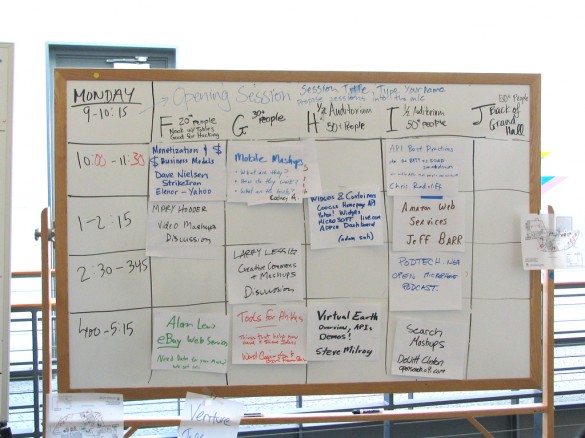 MONDAY
9-10:15
Opening Session
Session Title, Type Your Name
into the mic
F 20 People
Good for Hacking
G 30 People
H ½ Auditorium
50+ People
I ½ Auditorium
50+ people
J 50+ People
Back of
Grand
Hall
10:00-11:30
Monetization & $
$ Business Models
Dave Nielsen
StrikeIron
Elenor - Yahoo
Mobile Mashups
- What are they?
- How do they work?
API Best Practices
Chris Radcliff
1-2:15
MARY HODDER
Video Mashups
Discussion
WIDGETS & Containers
Google Homepage API
Yahoo! Widgets
MICROSOFT live.com
APPLE Dashboard
(adam sah)
Amazon Web
Services
Jeff BARR
2:30-3:45
LARRY LESSIG
Creative Commons
& Mashups
Discussion
PODTECH.NET
OPEN
PODCAST.
4:00-5:15
Alan Lewis
eBay Web Services
Tools for
Things that help
Virtual Earth
Overview, APIs
Demos!
Steve Milroy
Search
Mashups
DeWitt Clinton
opensearch.com
Venture